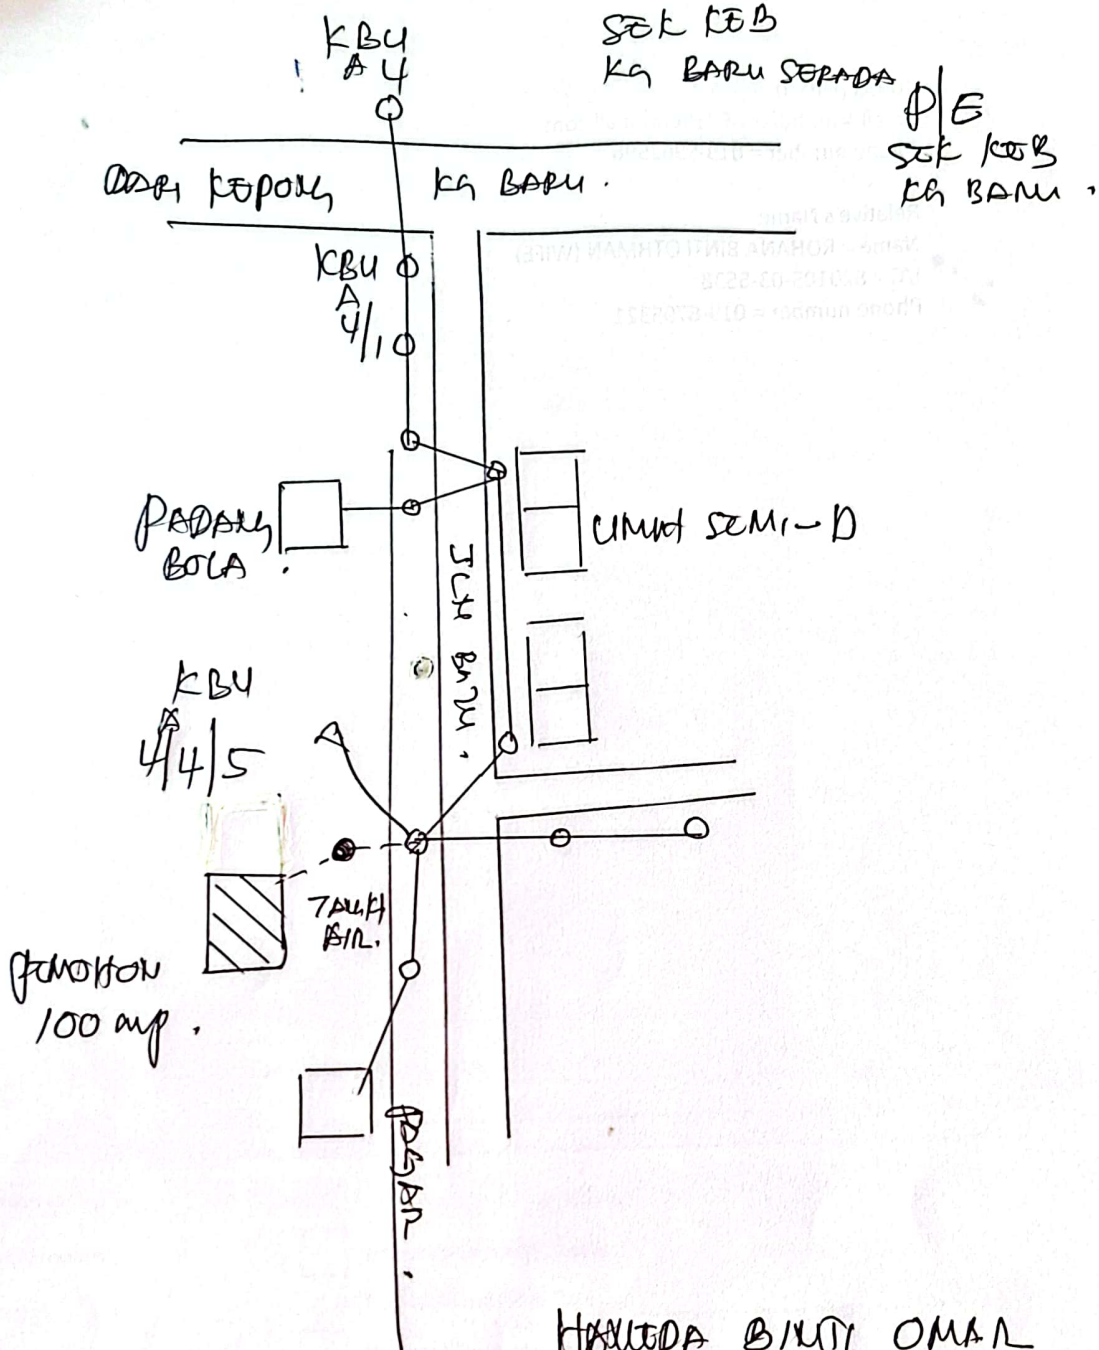 KBU
A 4
SEK KEB
KG BARU SERADA
P/E
SEK KEB
KG BARU.
DARI KEPONG
KG BARU.
KBU
A
4/1
PADANG
BOLA.
UMNH SEMI-D
JLN BARU.
KBU
A
4/4/5
TALIH
AIR.
PEMOHON
100 amp.
PASAR.
HAMIDA BINTI OMAR